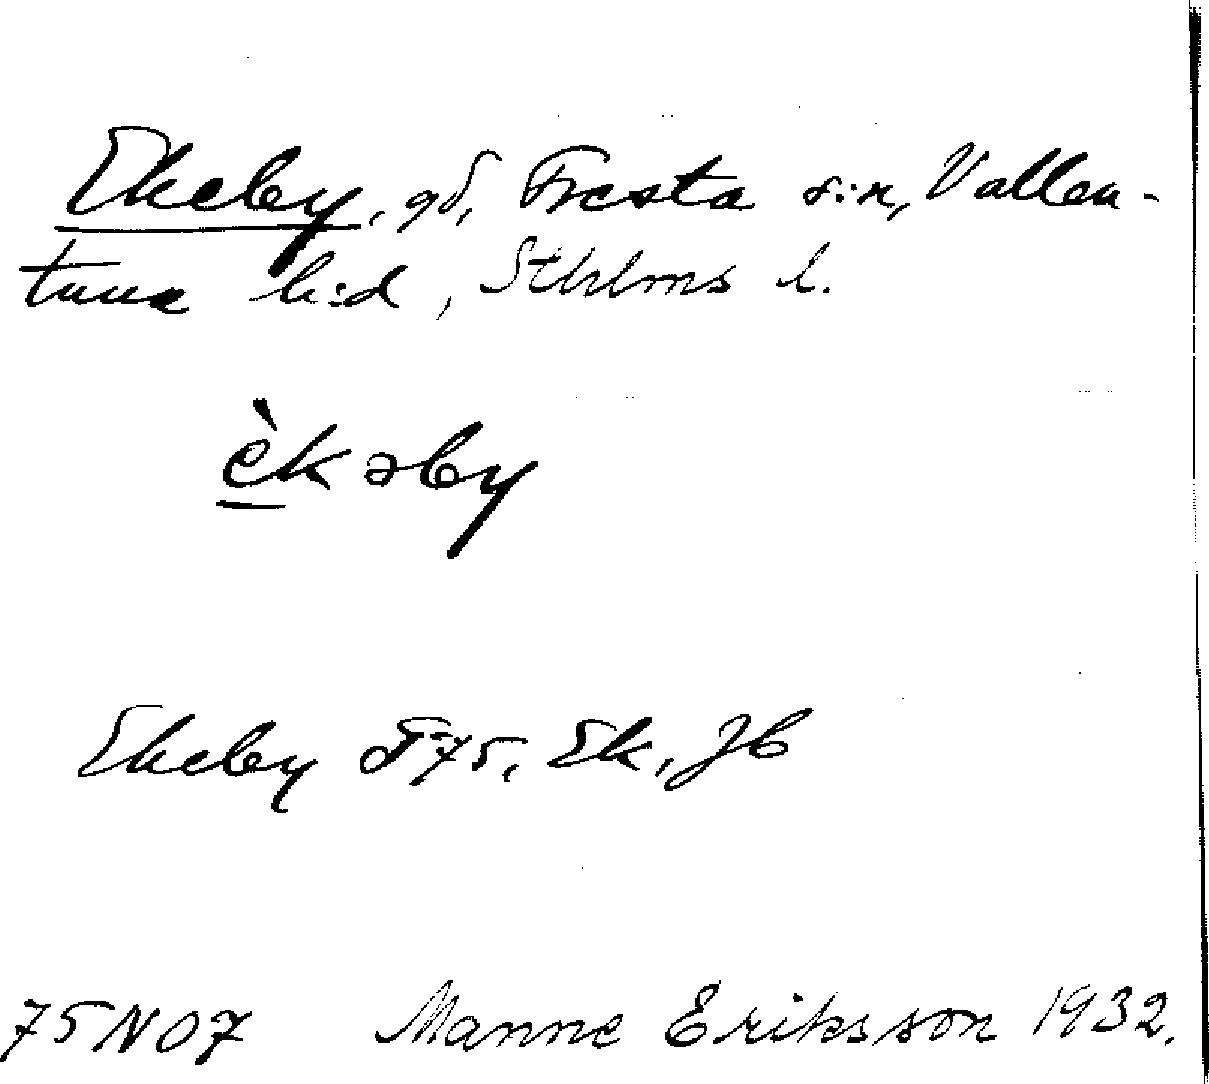 Ekeby, gd, Fresta s:n, Vallen-
tuna h:d, Sthlms l.
èkəby
Ekeby T 75, Ek, Jb
75 NO 7 Manne Eriksson 1932.